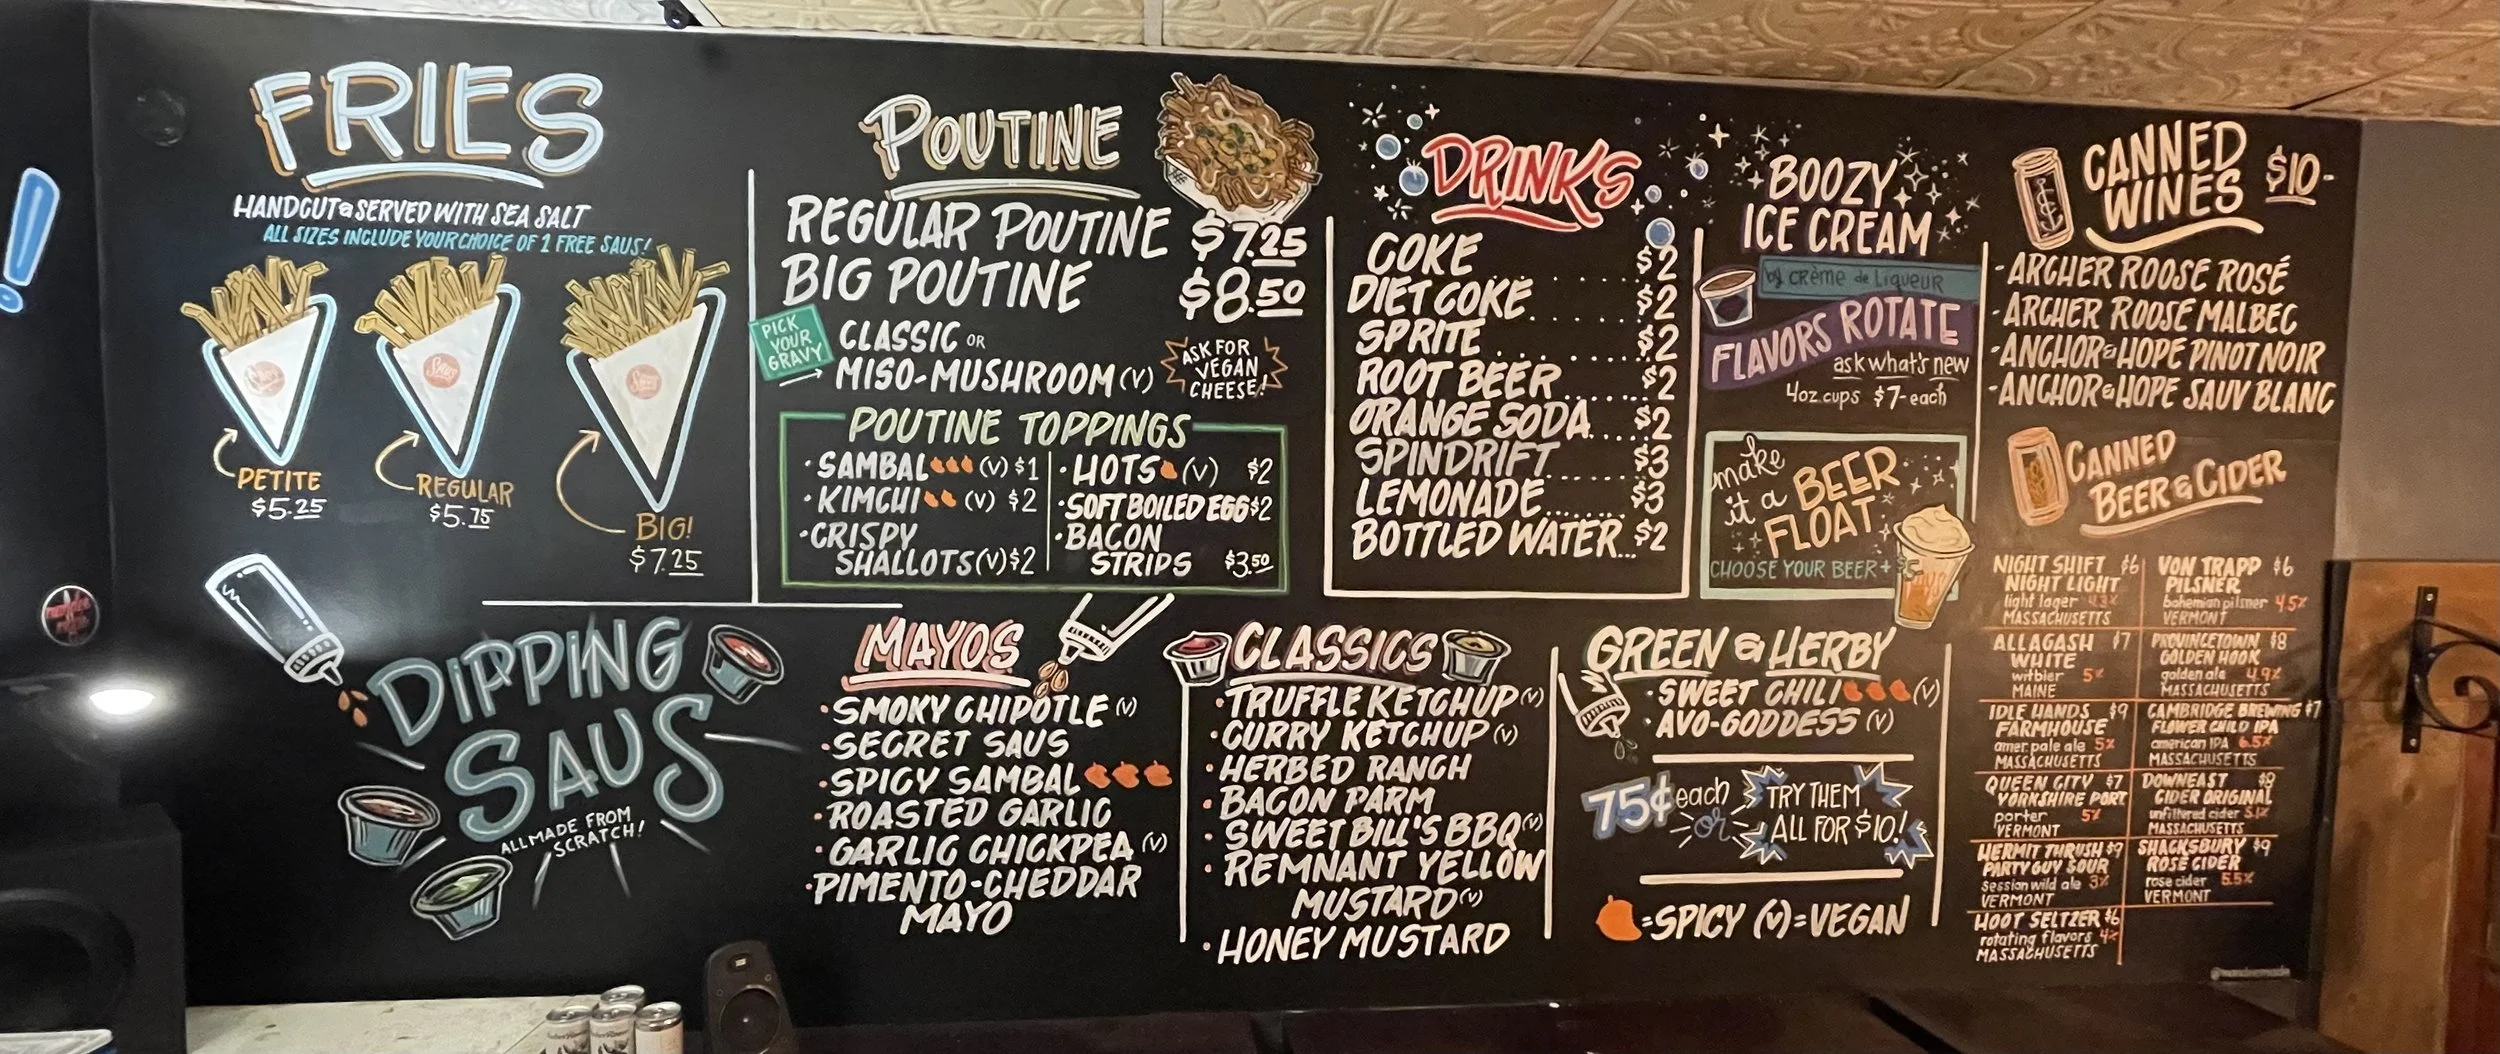 FRIES
HANDCUT & SERVED WITH SEA SALT
ALL SIZES INCLUDE YOUR CHOICE OF 1 FREE SAUS!
PETITE
$5.25
REGULAR
$5.75
BIG!
$7.25
POUTINE
REGULAR POUTINE $7.25
BIG POUTINE $8.50
PICK
YOUR
GRAVY
CLASSIC OR
MISO-MUSHROOM (V)
ASK FOR
VEGAN
CHEESE!
POUTINE TOPPINGS
· SAMBAL (V) $1
· KIMCHI (V) $2
· CRISPY
SHALLOTS (V) $2
· HOTS (V) $2
· SOFT BOILED EGG $2
· BACON
STRIPS $3.50
DRINKS
COKE $2
DIET COKE $2
SPRITE $2
ROOT BEER $2
ORANGE SODA $2
SPINDRIFT $3
LEMONADE $3
BOTTLED WATER $2
BOOZY
ICE CREAM
by crème de Liqueur
FLAVORS ROTATE
ask what's new
4oz. cups $7- each
make
it a BEER
FLOAT
CHOOSE YOUR BEER +
CANNED
WINES $10-
- ARCHER ROOSE ROSÉ
- ARCHER ROOSE MALBEC
- ANCHOR & HOPE PINOT NOIR
- ANCHOR & HOPE SAUV BLANC
CANNED
BEER & CIDER
NIGHT SHIFT $6
NIGHT LIGHT
light lager 4.3%
MASSACHUSETTS
VON TRAPP $6
PILSNER
bohemian pilsner 4.5%
VERMONT
ALLAGASH $7
WHITE
witbier 5%
MAINE
PROVINCETOWN $8
GOLDEN HOOK
golden ale 4.9%
MASSACHUSETTS
IDLE HANDS $9
FARMHOUSE
amer. pale ale 5%
MASSACHUSETTS
CAMBRIDGE BREWING $7
FLOWER CHILD IPA
american IPA 6.5%
MASSACHUSETTS
QUEEN CITY $7
YORKSHIRE PORT
porter 5%
VERMONT
DOWNEAST $8
CIDER ORIGINAL
unfiltered cider 5.1%
MASSACHUSETTS
HERMIT THRUSH $9
PARTY GUY SOUR
session wild ale 3%
VERMONT
SHACKSBURY $9
ROSÉ CIDER
rose cider 5.5%
VERMONT
HOOT SELTZER $6
rotating flavors 4%
MASSACHUSETTS
DIPPING
SAUS
ALL MADE FROM
SCRATCH!
MAYOS
· SMOKY CHIPOTLE (V)
· SECRET SAUS
· SPICY SAMBAL
· ROASTED GARLIC
· GARLIC CHICKPEA (V)
· PIMENTO-CHEDDAR
MAYO
CLASSICS
· TRUFFLE KETCHUP (V)
· CURRY KETCHUP (V)
· HERBED RANCH
· BACON PARM
· SWEET BILL'S BBQ (V)
· REMNANT YELLOW
MUSTARD (V)
· HONEY MUSTARD
GREEN & HERBY
· SWEET CHILI (V)
· AVO-GODDESS (V)
75¢ each
or
TRY THEM
ALL FOR $10!
=SPICY (V)=VEGAN